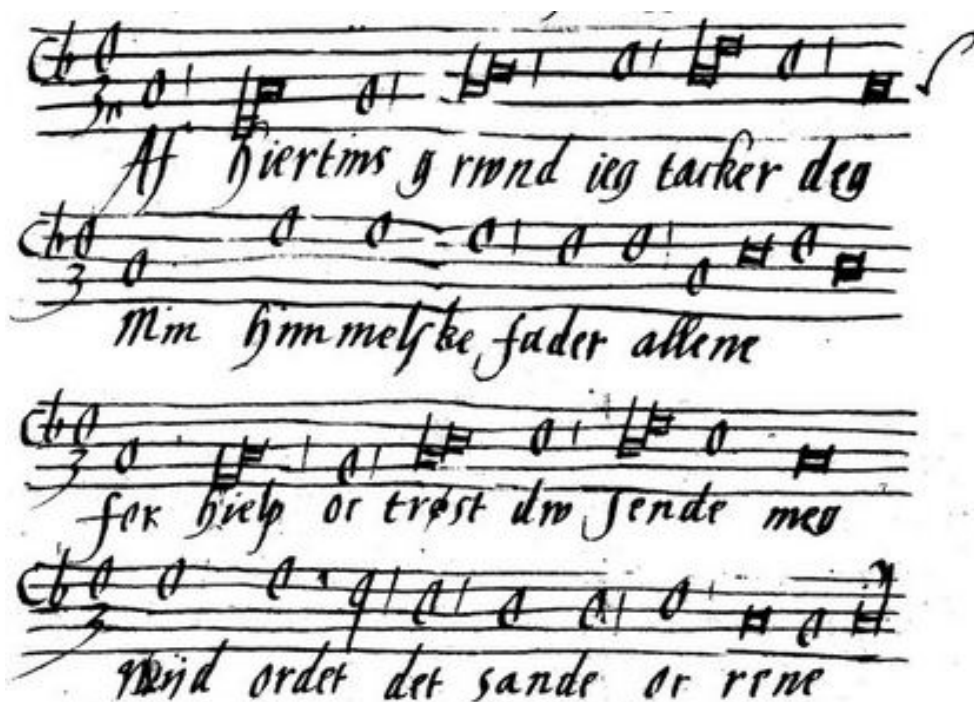 Af hiertens grwnd ieg tacker deg
Min himmelske fader allene
for hielp oc trøst dw sende meg
Mijd ordet det sande oc rene